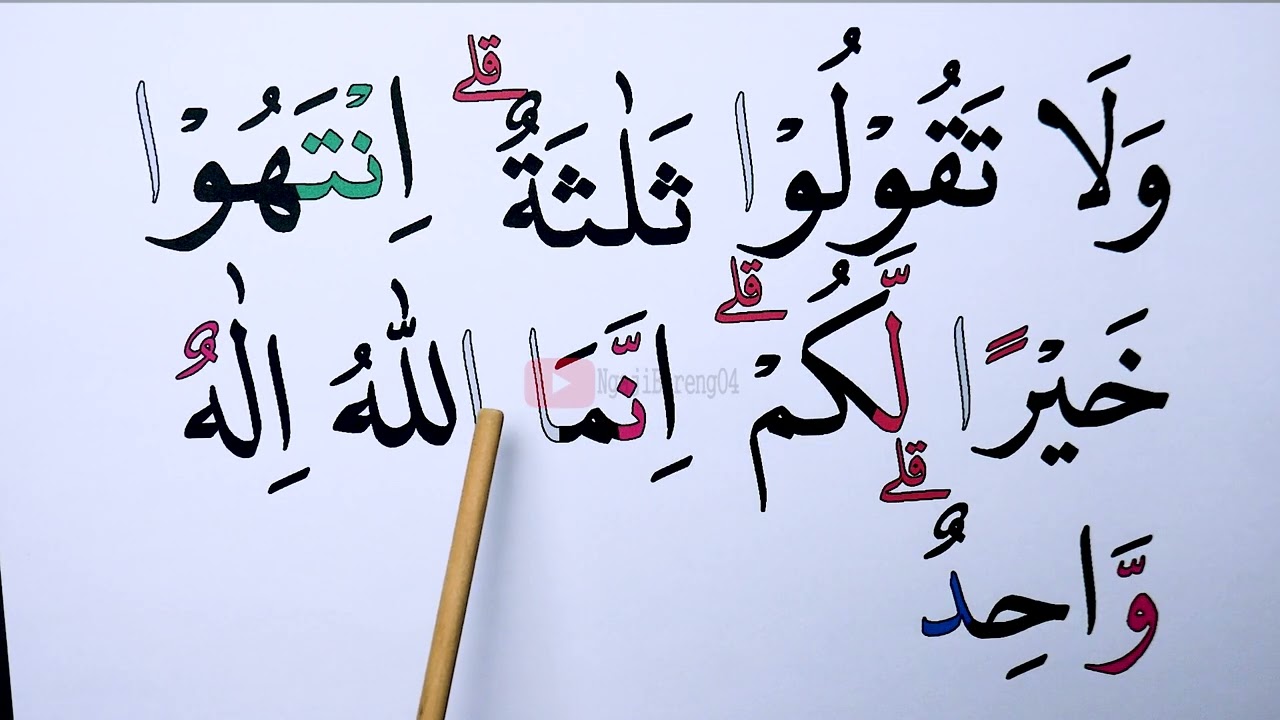 وَلَا تَقُوْلُوْا ثَلٰثَةٌ ۗ اِنْتَهُوْا
خَيْرًا لَّكُمْ ۗ اِنَّمَا اللّٰهُ اِلٰهٌ
وَّاحِدٌ ۗ
NgajiBareng04